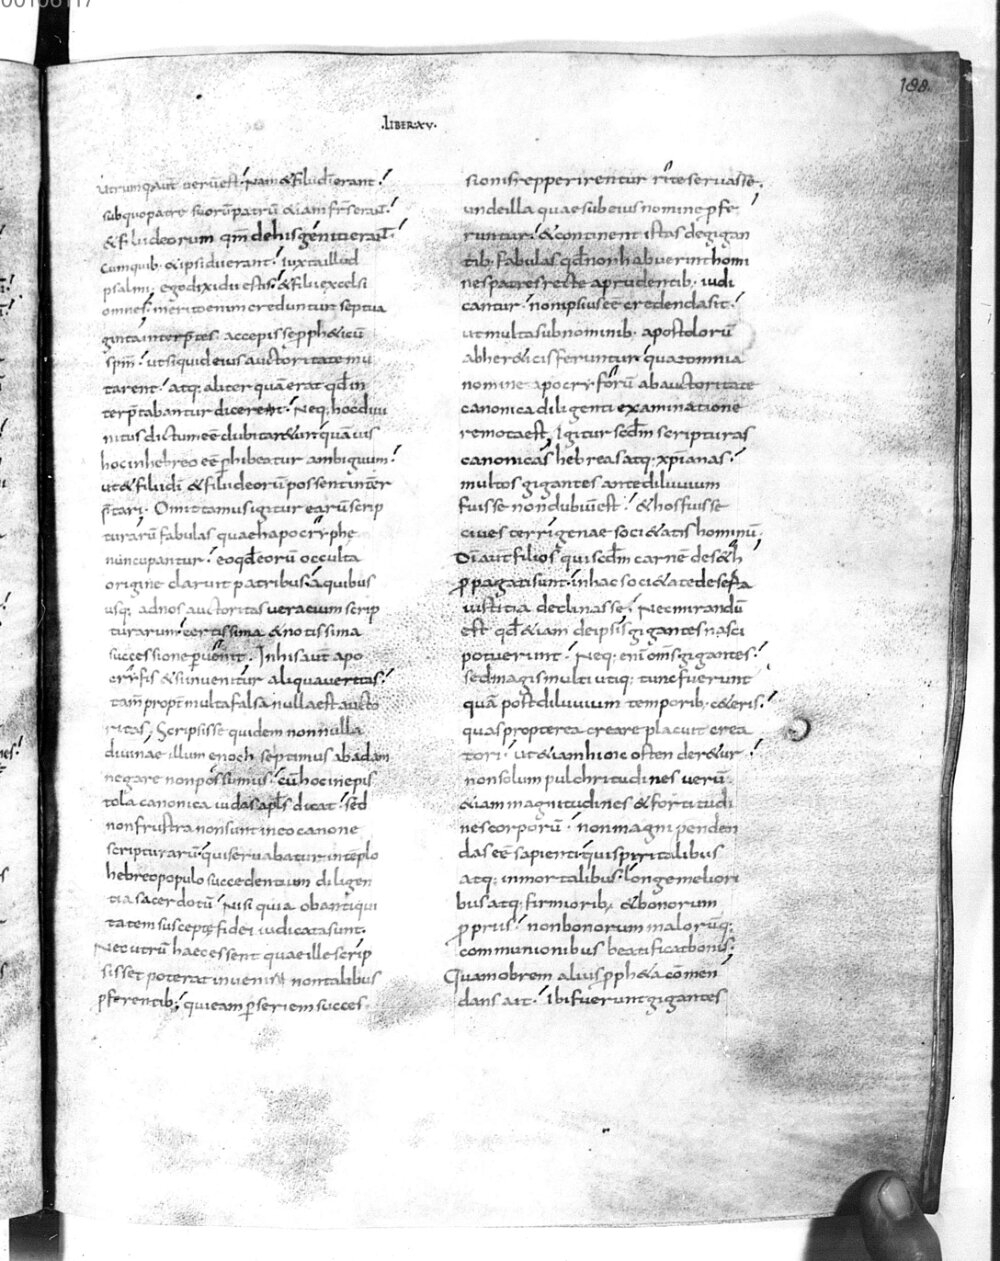 00106117
188.
.LIBER.XV.
utrumq; aut̄ uerū est; Nam & filii dī erant.
sub quo patre suorū patrū & iam fr̄s erant.
& filii deorum qm̄ de his geniti erant.
cum quib. & ipsi dii erant. iuxta illud
psalmi. ego dixi dii estis. & filii excelsi
omnes. merito enim creduntur septua
ginta interp̄tes accepisse pph&icū
sp̄m. ut si quid eius auctoritate mu
tarent. atq; aliter quā erat qd̄ in
terp̄tabantur dicerent. Neq; hoc diui
nitus dictum eē dubitar&ur. quāuis
hoc in hebreo eē phibeatur ambiguum.
ut & filii dī & filii deorū possent inter
p̄tari. Omittamus igitur earū scrip
turarū fabulas quae hapocryphe
nuncupantur. eo qd̄ eorū occulta
origine claruit patribus. a quibus
usq; ad nos auctoritas ueracium scrip
turarum. certissima & notissima
successione peruenit. In his aut̄ apo
cryfis & si inuenitur aliqua ueritas.
tam̄ propt̄ multa falsa nulla est aucto
ritas; Scripsisse quidem nonnulla
diuinae illum enoch septimus ab adam
negare non possumus. cū hoc in epis
tola canonica iudas apl̄s dicat. sed
non frustra non sunt in eo canone
scripturarū. qui seruabatur in tēplo
hebreo populo succedentium diligen
tia sacerdotū. Nisi quia ob antiqui
tatem suscepte fidei iudicata sunt.
Nec utrū haec essent quae ille scrip
sisset poterat inueniri non talibus
pferentib; qui eam p seriem succes
sionis repperirentur rite seruasse.
unde illa quae sub eius nomine pfe
runtur. & continent istas de gigan
tib. fabulas qd̄ non habuerint homi
nes patres recte a prudentib. iudi
cantur. non ipsius eē credenda sit.
ut multa sub nominib. apostolorū
ab her&icis feruntur quae omnia
nomine apocryforū ab auctoritate
canonica diligenti examinatione
remota est; Igitur scdm̄ scripturas
canonicas hebreas atq. xpianas.
multos gigantes ante diluuium
fuisse non dubiū est. & hos fuisse
ciues terrigenae soci&atis hominū.
Dī aut̄ filios qui scdm̄ carnē de s&h
ppagati sunt. in hac soci&ate deserta
iustitia declinasse; Nec mirandū
est qd̄ & iam de ipsis gigantes nasci
potuerint. Neq; enī om̄s gigantes.
sed magis multi utiq; tunc fuerunt
quā post diluuium temporib. c&eris.
quas propterea creare placuit crea
tori. ut & iam hinc ostender&ur.
non solum pulchritudines uerū
& iam magnitudines & fortitudi
nes corporū. non magni penden
das eē sapienti. qui spiritalibus
atq; inmortalibus. longe meliori
bus atq; firmiorib. & bonorum
ppriis. non bonorum malorūq;
communionibus beatificationis.
Quam obrem alius pph&a cōmen
dans ait. Ibi fuerunt gigantes